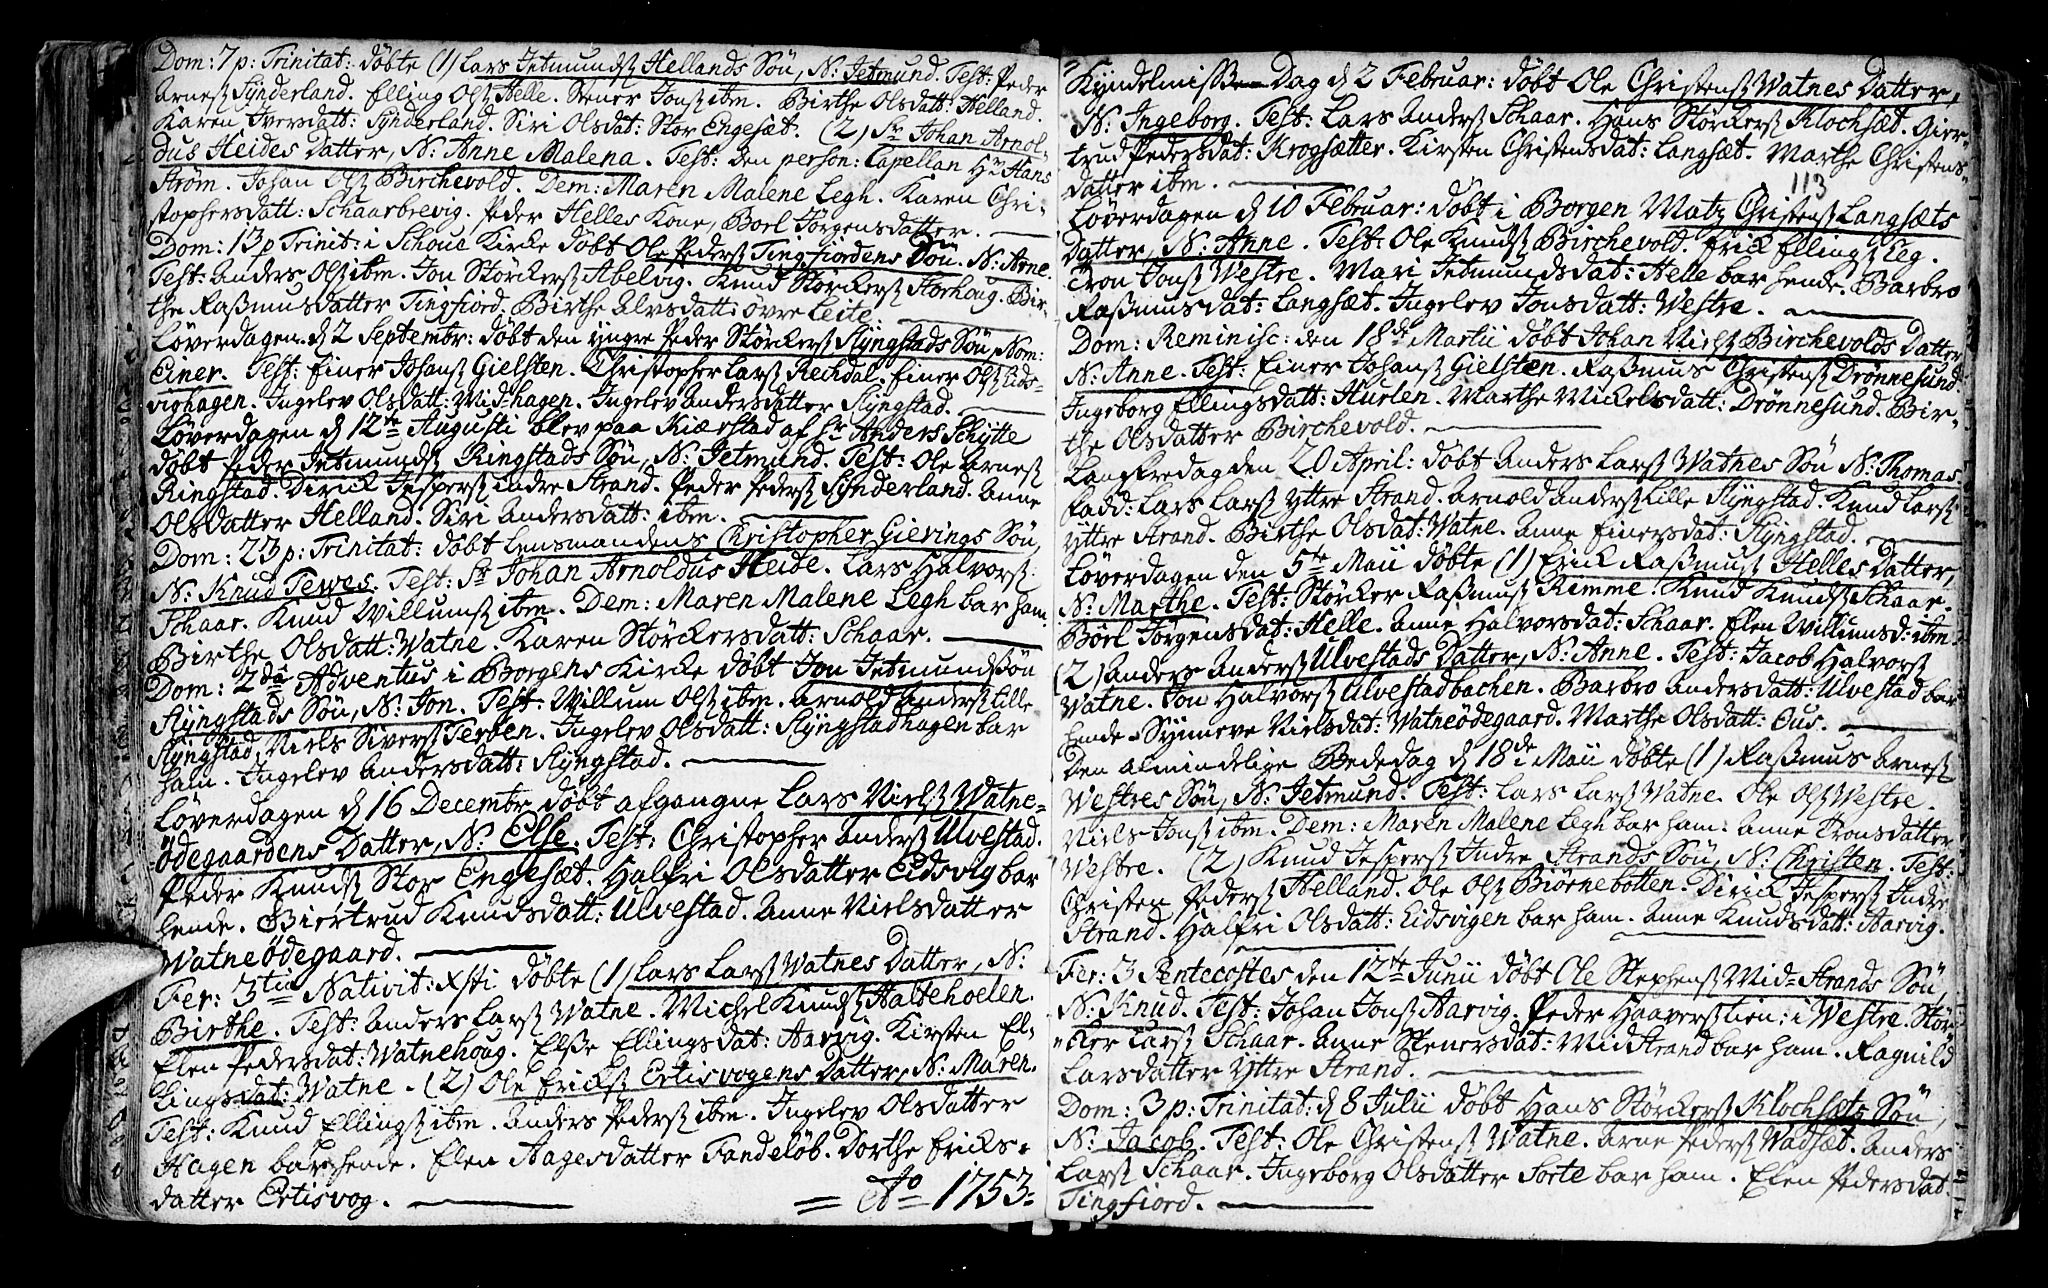 Dom: 7 p: Trinitat: döbte (1) Lars Jetmunds Hellands Sön, N: Jetmund. Test: Peder
Arnes Synderland. Elling Ols Helle. Stener Jons ibm. Birthe Olsdatt: Helland.
Karen Iversdatt: Synderland. Siri Olsdat: Stor Engesæt. (2) Sr Johan Arnol-
dus Heides Datter, N: Anne Malena. Test: Den person: Capellan Hr Hans
Ström. Johan Ols Birchevold. Dem: Maren Malene Legh. Karen Chri-
stophersdatt: Schaarbrevig. Peder Helles Kone, Boel Jörgensdatter.
Dom: 13 p Trinit: i Schoue Kirke döbt Ole Peders Tingfiordens Sön. N: Arne.
Test: Anders Ols ibm. Jon Störckers Abelvig. Knud Störckers Storhoug. Bir-
the Rasmusdatter Tingfiord. Birthe Alvsdatt: övre Leite.
Löverdagen d 2 Septembr: döbt den yngre Peder Störckers Slyngstads Sön, Nom:
Einer. Test: Einer Johans Gielsten. Christopher Lars Rechdal. Einer Ols Eids-
vighagen. Ingelev Olsdatt: Midhagen. Ingelev Andersdatter Slyngstad.
Löverdagen d 12te Augusti blev paa Kiærstad af Hr Anders Schytte
döbt Peder Jetmunds Ringstads Sön, N: Jetmund. Test: Ole Arnes
Ringstad. Dirick Jespers indre Strand. Peder Peders Synderland. Anne
Olsdatter Helland. Siri Andersdatt: ibm.
Dom: 23 p: Trinitat: döbt Lensmandens Christopher Gierings Sön,
N: Knud Tewes. Test: Sr Johan Arnoldus Heide. Lars Halvors
Schaar. Knud Willums ibm. Dem: Maren Malene Legh bar ham.
Birthe Olsdatt: Watne. Karen Störckersdatt: Schaar.
Dom: 2da Adventus i Borgens Kirke döbt Jon Jetmundsön
Slyngstads Sön, N: Jon. Test: Willum Ols ibm. Arnold Anders Lille
Slyngstad. Niels Sivers Terben. Ingelev Olsdatt: Slyngstadhagen bar
ham. Ingelev Andersdatt: Slyngstad.
Löverdagen d 16 Decembr döbt afgangne Lars Niels Watne-
ödegaardens Datter, N: Else. Test: Christopher Anders Ulvestad.
Peder Knuds Stor Engesæt. Halfri Olsdatter Eidsvig bar
hende. Giertrud Knudsdatt: Ulvestad. Anne Nielsdatter
Watneödegaard.
Fer: 3tia Nativit: Xsti döbte (1) Lars Lars Watnes Datter, N:
Birthe. Test: Anders Lars Watne. Michel Knuds Haltehoelen.
Elen Pedersdat: Watnehoug. Else Ellingsdat: Aarvig. Kirsten El-
lingsdat: Watne. (2) Ole Ericks Ertisvogens Datter, N: Maren.
Test: Knud Ellings ibm. Anders Peders ibm. Ingelev Olsdatter
Hagen bar hende. Elen Aagesdatter Fandelöb. Dorthe Ericks-
datter Ertisvog.
Ao 1753.
Kyndelmisse Dag d 2 Februar: döbt Ole Christens Watnes Datter,
N: Ingeborg. Test: Lars Anders Schaar. Hans Störckers Klochsæt. Gier-
trud Pedersdat: Krogsætter. Kirsten Christensdat: Langsæt. Marthe Christens-
datter ibm.
113
Löverdagen d 10 Februar: döbt i Borgen Mats Christens Langsæts
Datter, N: Anne. Test: Ole Knuds Birchevold. Erick Ellings Eeg.
Tron Jons Westre. Mari Jetmundsdat: Helle bar hende. Barbro
Rasmusdat: Langsæt. Ingelev Jonsdatt: Westre.
Dom: Reminisc: den 18de Martii döbt Johan Niels Birchevolds Datter
N: Anne. Test: Einer Johans Gielsten. Rasmus Christens Drönnesund.
Ingeborg Ellingsdatt: Hurlen. Marthe Mickelsdatt: Drönnesund. Bir-
the Olsdatter Birchevold.
Langfredag den 20 April: döbt Anders Lars Watnes Sön N: Thomas.
Fadd: Lars Lars yttre Strand. Arnold Anders Lille Slyngstad. Knud Lars
yttre Strand. Birthe Olsdat: Watne. Anne Einersdat: Slyngstad.
Löverdagen den 5te Maii döbte (1) Erick Rasmus Helles Datter,
N: Marthe. Test: Störcker Rasmus Remme. Knud Knuds Schaar.
Boel Jörgensdat: Helle. Anne Halvorsdat: Schaar. Elen Willumsd: ibm.
(2) Anders Anders Ulvestads Datter, N: Anne. Test: Jacob Halvors
Watne. Jon Halvors Ulvestadbachen. Barbro Andersdatt: Ulvestad bar
hende. Synneve Nielsdat: Watneödegaard. Marthe Olsdatt: Ous.
Den almindelige Bededag d 18de Maii döbte (1) Rasmus Arnes
Westres Sön, N: Jetmund. Test: Lars Lars Watne. Ole Ols Westre.
Niels Jons ibm. Dem: Maren Malene Legh bar ham. Anne Tronsdatter
Westre. (2) Knud Jespers Indre Strands Sön, N: Christen. Test:
Christen Peders Helland. Ole Ols Biörnebotten. Dirick Jespers Indre
Strand. Halfri Olsdatt: Eidsvigen bar ham. Anne Knudsdatt: Aarvig.
Fer: 3 Pentecostes den 12te Junii döbt Ole Stephens Mid-Strands Sön,
N: Knud. Test: Johan Jons Aarvig. Peder Haavers tien: i Westre. Stör-
cker Lars Schaar. Anne Stenersdat: Midstrand bar ham. Ragnild
Larsdatter yttre Strand.
Dom: 3 p: Trinitat: d 8 Julii döbt Hans Störckers Klochsæts Sön,
N: Jacob. Test: Ole Christens Watne. Arne Peders Wadsæt. Anders
Lars Schaar. Ingeborg Olsdatter Sorte bar ham. Elen Pedersdat:
Tingfiord.